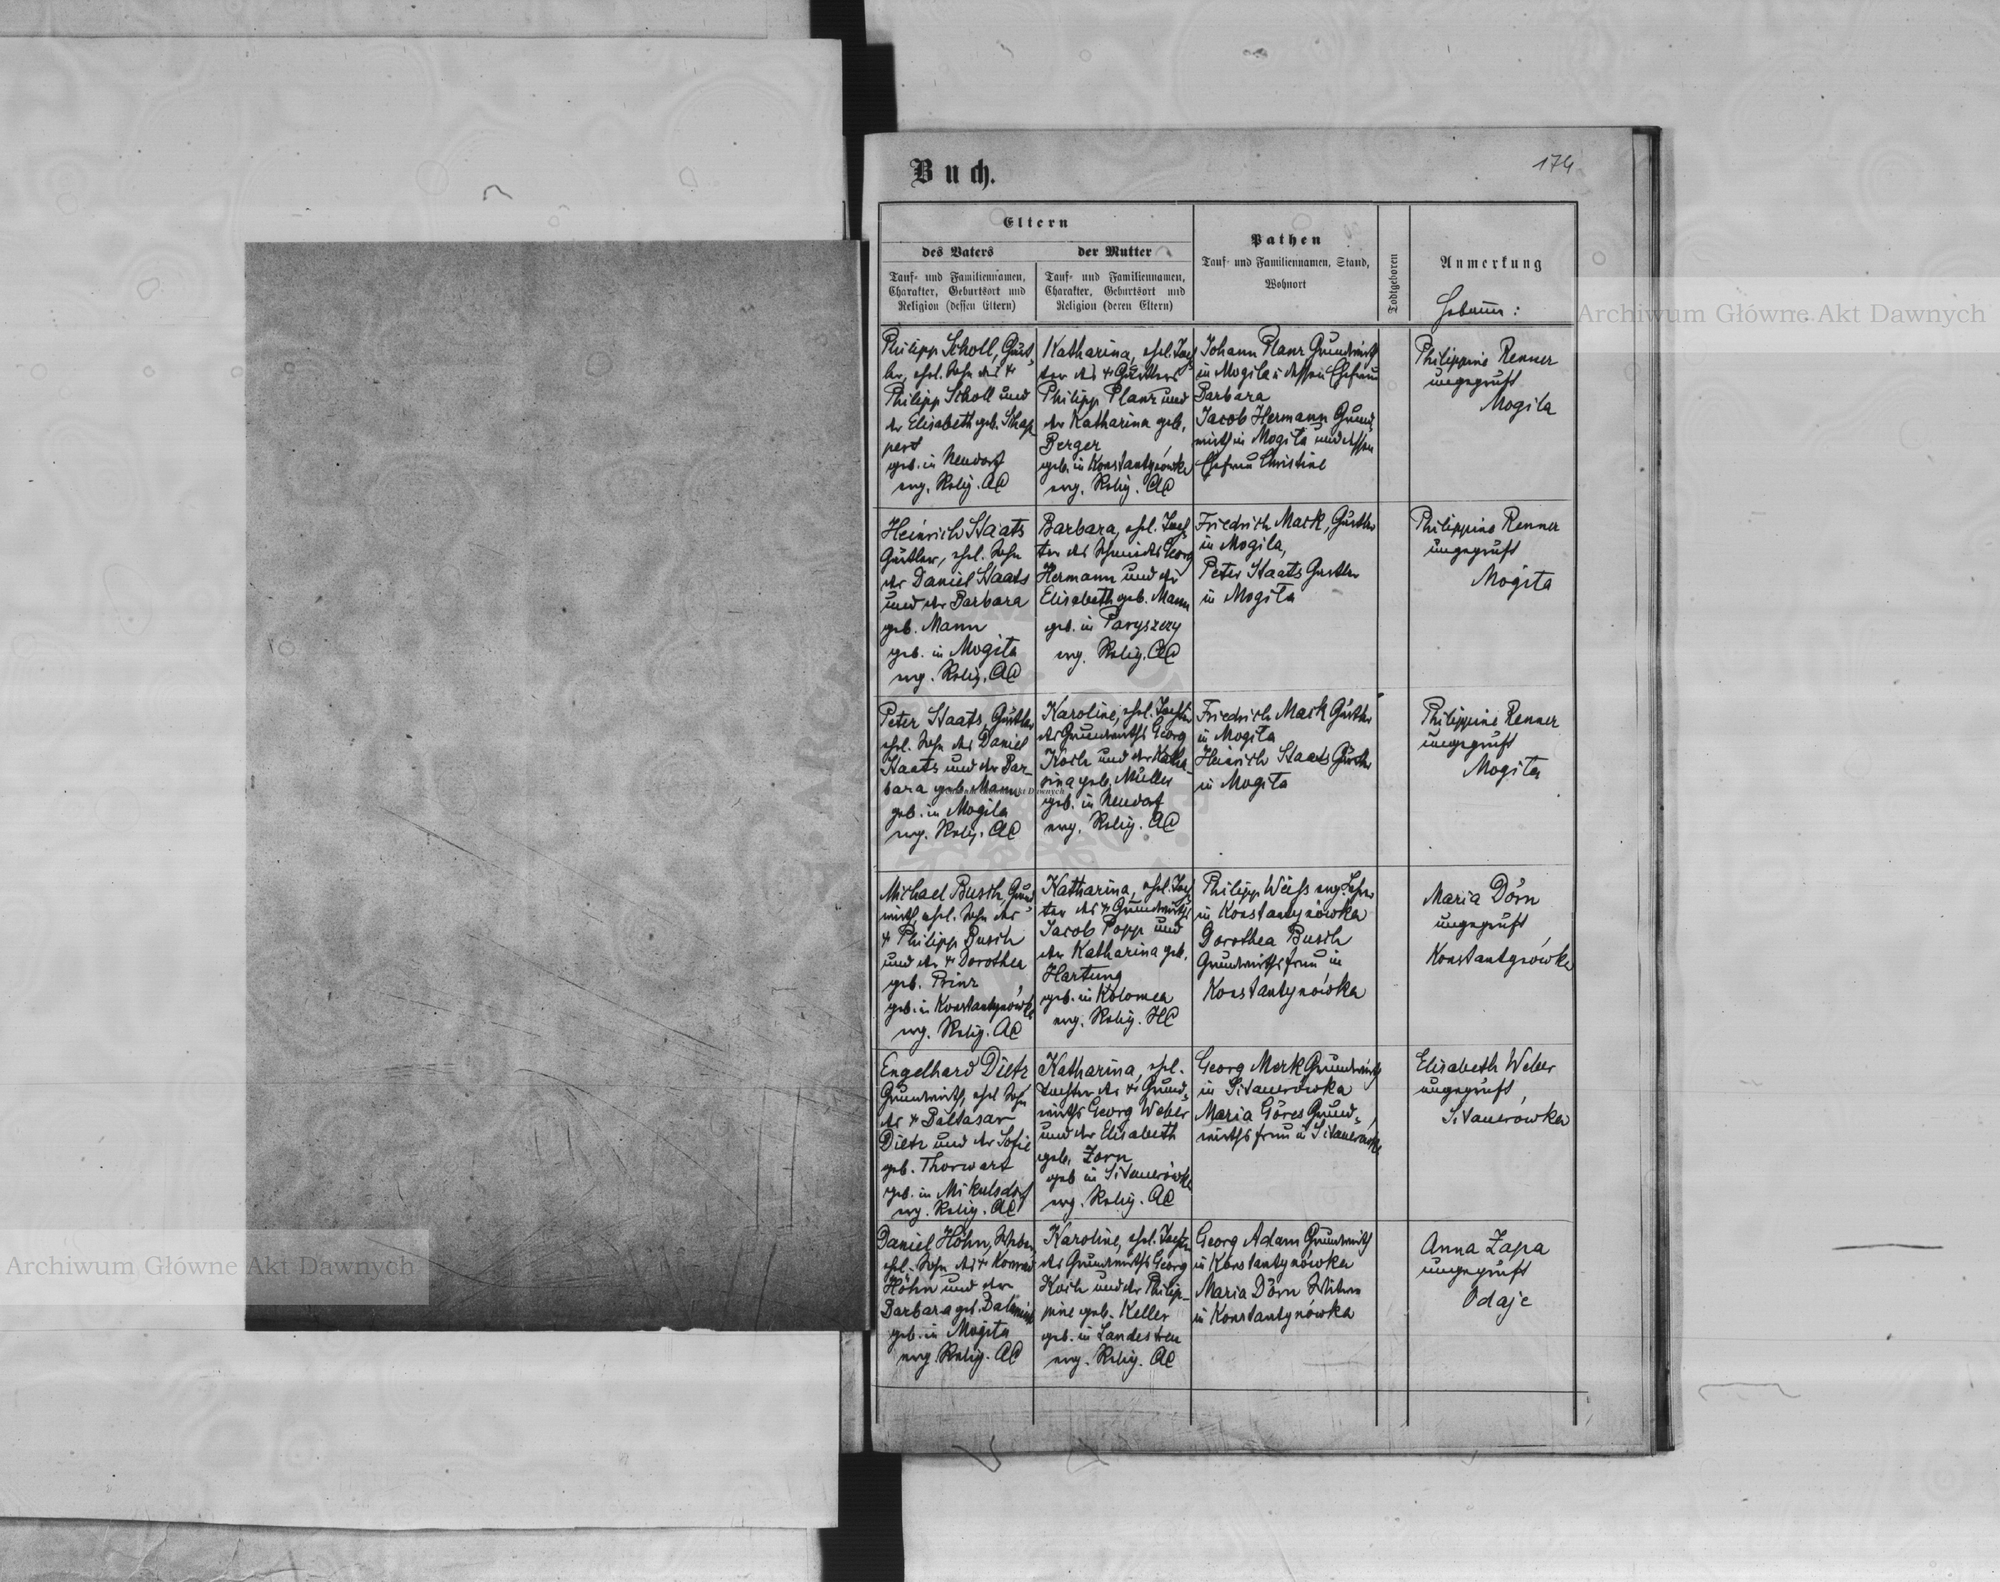 Buch.
174
Eltern
des Vaters
der Mutter
Tauf- und Familiennamen,
Charakter, Geburtsort und
Religion (dessen Eltern)
Tauf- und Familiennamen,
Charakter, Geburtsort und
Religion (deren Eltern)
Pathen
Tauf- und Familiennamen, Stand,
Wohnort
Todtgeboren
Anmerkung
Philipp Scholl, Gärt-
ler, ehel. Sohn des +
Philipp Scholl und
der Elisabeth geb. Schap
pert
geb. in Neudorf
evg. Relig. AC
Katharina, ehel. Toch
ter des + Gärtlers
Philipp Planz und
der Katharina geb.
Berger
geb. in Konstantynówka
evg. Relig. AC
Johann Planz Grundwirth
in Mogila u dessen Ehefrau
Barbara
Jacob Hermann Grund
wirth in Mogila und dessen
Ehefrau Christine
Philippine Renner
ungeprüft
Mogila
Heinrich Staats
Gärtler, ehel. Sohn
des Daniel Staats
und der Barbara
geb. Mann
geb. in Mogila
evg. Relig. AC
Barbara, ehel. Toch
ter des Schmieds Georg
Hermann und der
Elisabeth geb. Mann
geb. in Paryszczy
evg. Relig. AC
Friedrich Mack, Gärtler
in Mogila,
Peter Staats Gärtler
in Mogila
Philippine Renner
ungeprüft
Mogila
Peter Staats, Gärtler
ehel. Sohn des Daniel
Staats und der Bar-
bara geb. Mann
geb. in Mogila
evg. Relig. AC
Karoline, ehel. Tochter
des Grundwirths Georg
Koch und der Katha-
rina geb. Müller
geb. in Neudorf
evg. Relig. AC
Friedrich Mack Gärtler
in Mogila
Heinrich Staats Gärtler
in Mogila
Philippine Renner
ungeprüft
Mogila
Michael Busch, Grund-
wirth, ehel. Sohn des
+ Philipp Busch
und der + Dorothea
geb. Prinz
geb. in Konstantynówka
evg. Relig. AC
Katharina, ehel. Toch
ter des + Grundwirths
Jacob Popp und
der Katharina geb.
Hartung
geb. in Kolomea
evg. Relig. HC
Philipp Weiss evg Lehrer
in Konstantynówka
Dorothea Busch
Grundwirthsfrau in
Konstantynówka
Maria Dörn
ungeprüft
Konstantynówka
Engelhard Dietz
Grundwirth, ehel Sohn
des + Baltasar
Dietz und der Sofie
geb. Thorwart
geb. in Mikulsdorf
evg. Relig. AC
Katharina, ehel.
Tochter des + Grund-
wirths Georg Weber
und der Elisabeth
geb. Zorn
geb in Sitauerówka
evg. Relig. AC
Georg Merk Grundwirth
in Sitauerówka
Maria Göres Grund-
wirthsfrau in Sitauerówka
Elisabeth Weber
ungeprüft
Sitauerówka
Daniel Höhn,
ehel. Sohn des + Konrad
Höhn und der
Barbara geb.
geb. in Mogila
evg. Relig. AC
Karoline, ehel. Tochter
des Grundwirths Georg
Koch und der Philip-
pine geb. Keller
geb. in Landestreu
evg. Relig. AC
Georg Adam Grundwirth
in Konstantynówka
Maria Dörn Witwe
in Konstantynówka
Anna Zapa
ungeprüft
Odaje
Archiwum Główne Akt Dawnych
Archiwum Główne Akt Dawnych